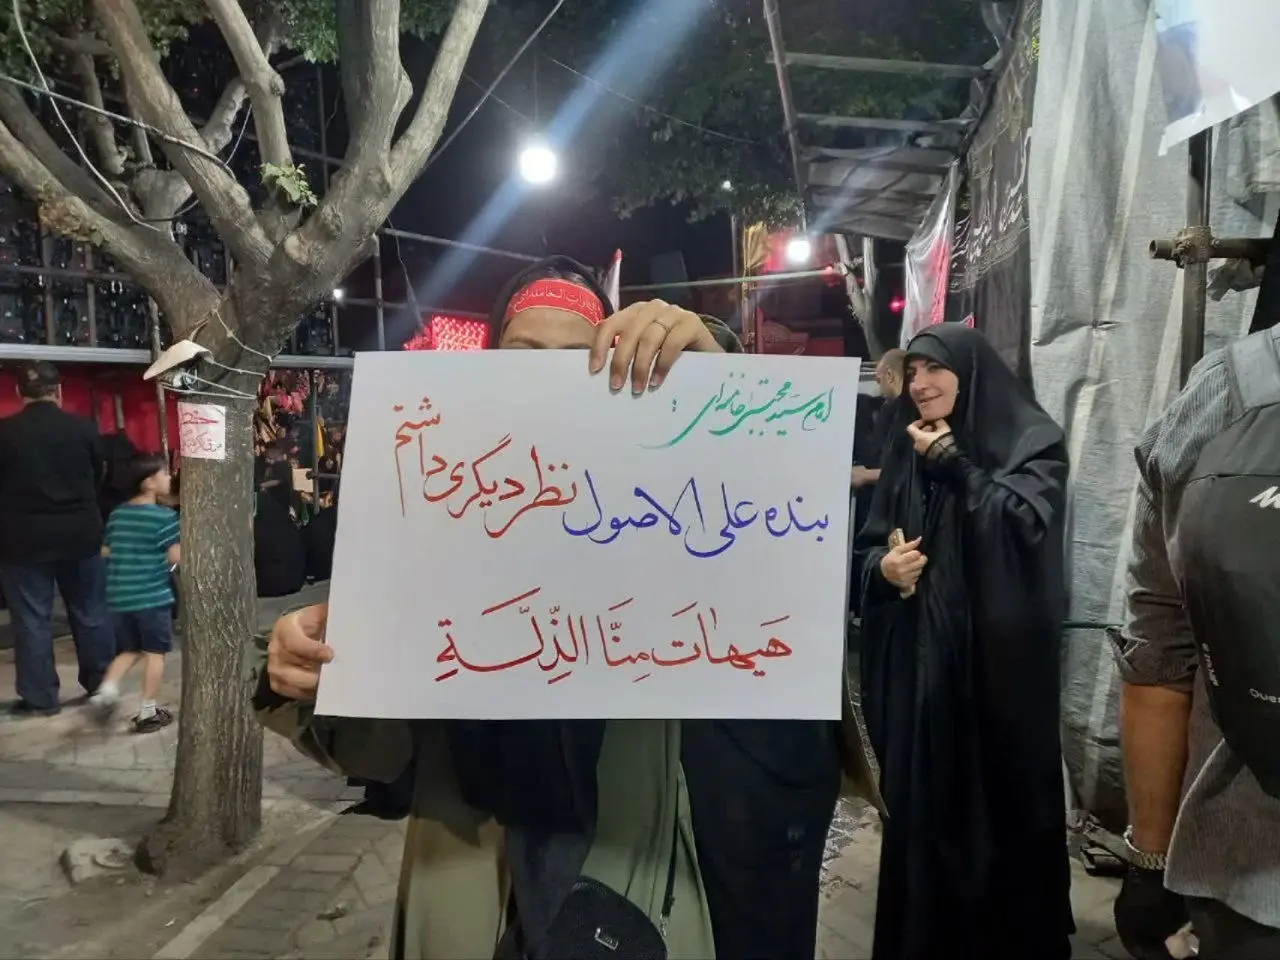 امام سید مجتبی خامنه‌ای :
بنده علی الاصول نظر دیگری داشتم
هَیهات مِنَّا الذِّلَّةِ